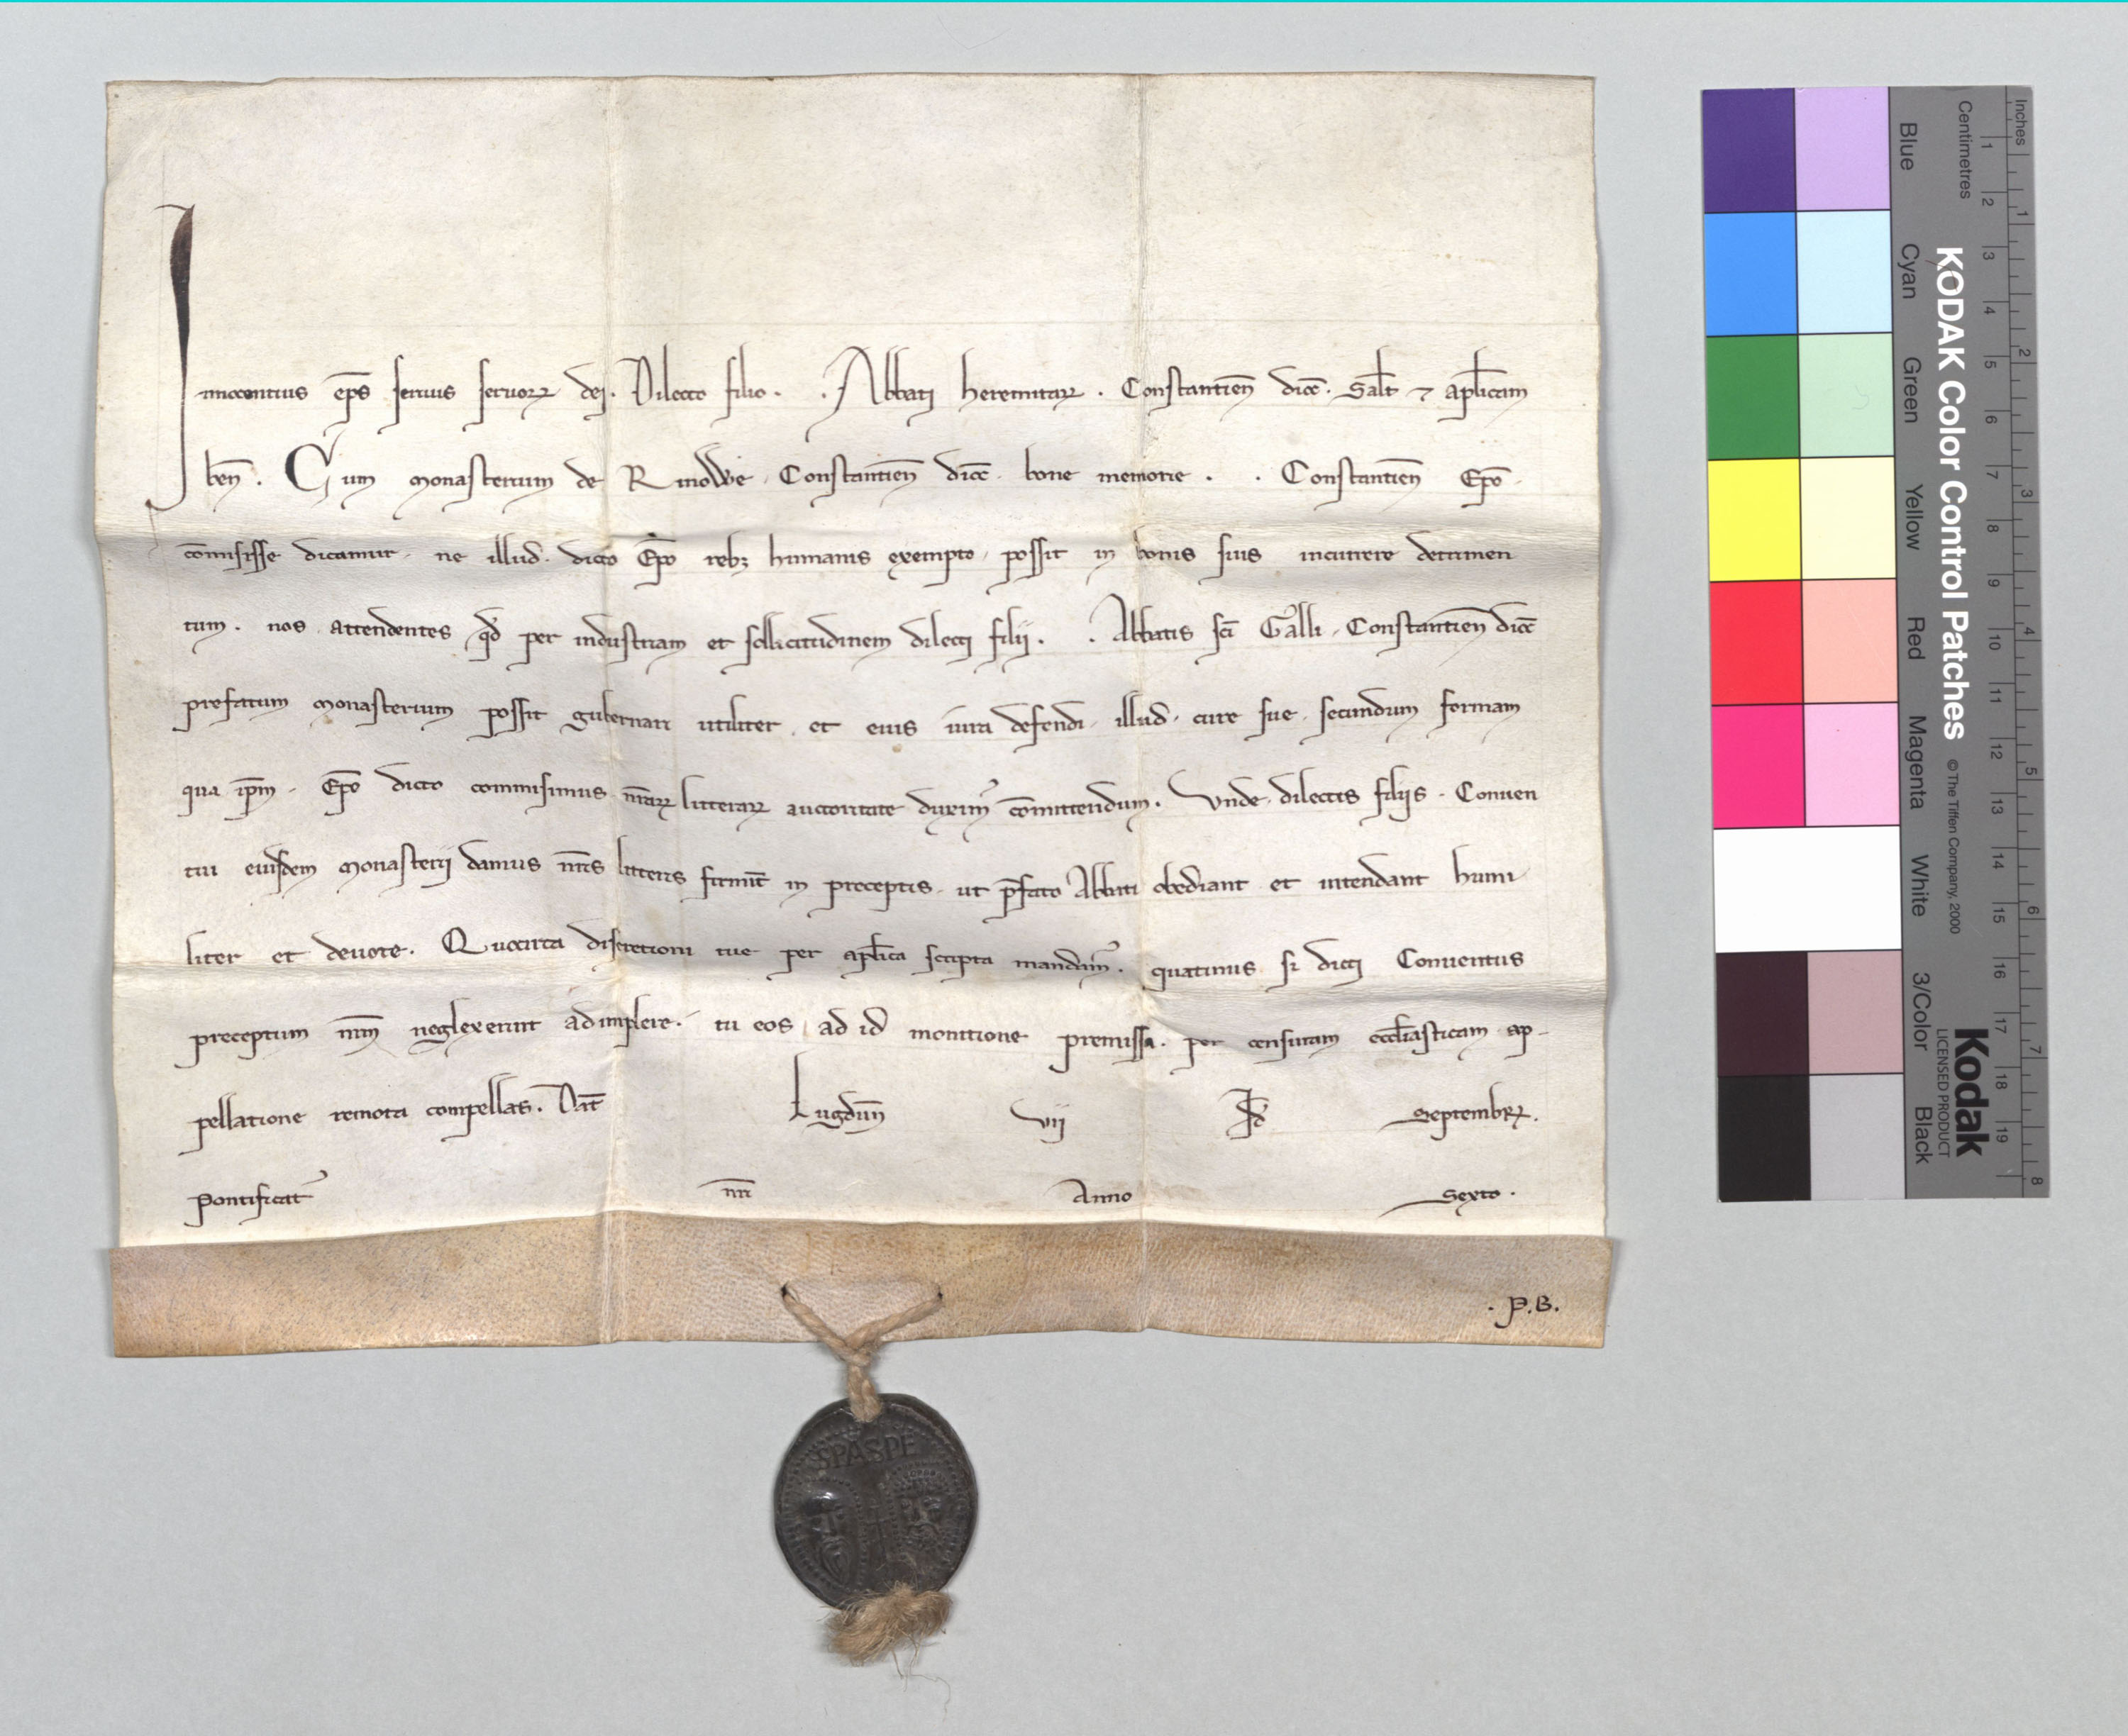 Innocentius ep̄s seruus seruoꝝ dei. Dilecto filio. . Abbati heremitaꝝ. Constantień dioc̄. Sal̄t ⁊ apl̄icam
ben̄. Cum monasterium de Rinowe Constantień dioc̄. bone memorie . . Constantień Ep̄o
cōmisisse dicamur. ne illud. dicto Ep̄o rebꝫ humanis exempto, possit in bonis suis incurrere detrimen
tum. nos attendentes qd̄ per industriam et sollicitudinem dilecti filij. . Abbatis sc̄i Galli, Constantień dioc̄
prefatum monasterium possit gubernari utiliter. et eius iura defendi. illud. cure sue. secundum formam
qua ip̄m. Ep̄o dicto commisimus nr̄aꝝ litteraꝝ auctoritate duximꝰ cōmittendum. Vnde. dilectis filijs. Conuen
tui eiusdem monasterij damus nr̄is litteris firmit̄ in preceptis. ut p̄fato Abbati obediant et intendant humi
liter et deuote. Quocirca discretioni tue per apl̄ica scripta mandamꝰ. quatinus si dicti Conuentus
preceptum nr̄m neglexerint adimplere. tu eos ad id monitione premissa. per censuram eccl̄iasticam ap-
pellatione remota compellas. Dat̄ Lugdun̄ vii Id̄ Septembꝝ.
Pontificatꝰ nr̄i Anno Sexto.
. P.B.
SPASPE
KODAK Color Control Patches
© The Tiffen Company, 2000
Kodak
LICENSED PRODUCT
Inches
1 2 3 4 5 6 7 8
Centimetres
1 2 3 4 5 6 7 8 9 10 11 12 13 14 15 16 17 18 19
Blue
Cyan
Green
Yellow
Red
Magenta
White
3/Color
Black